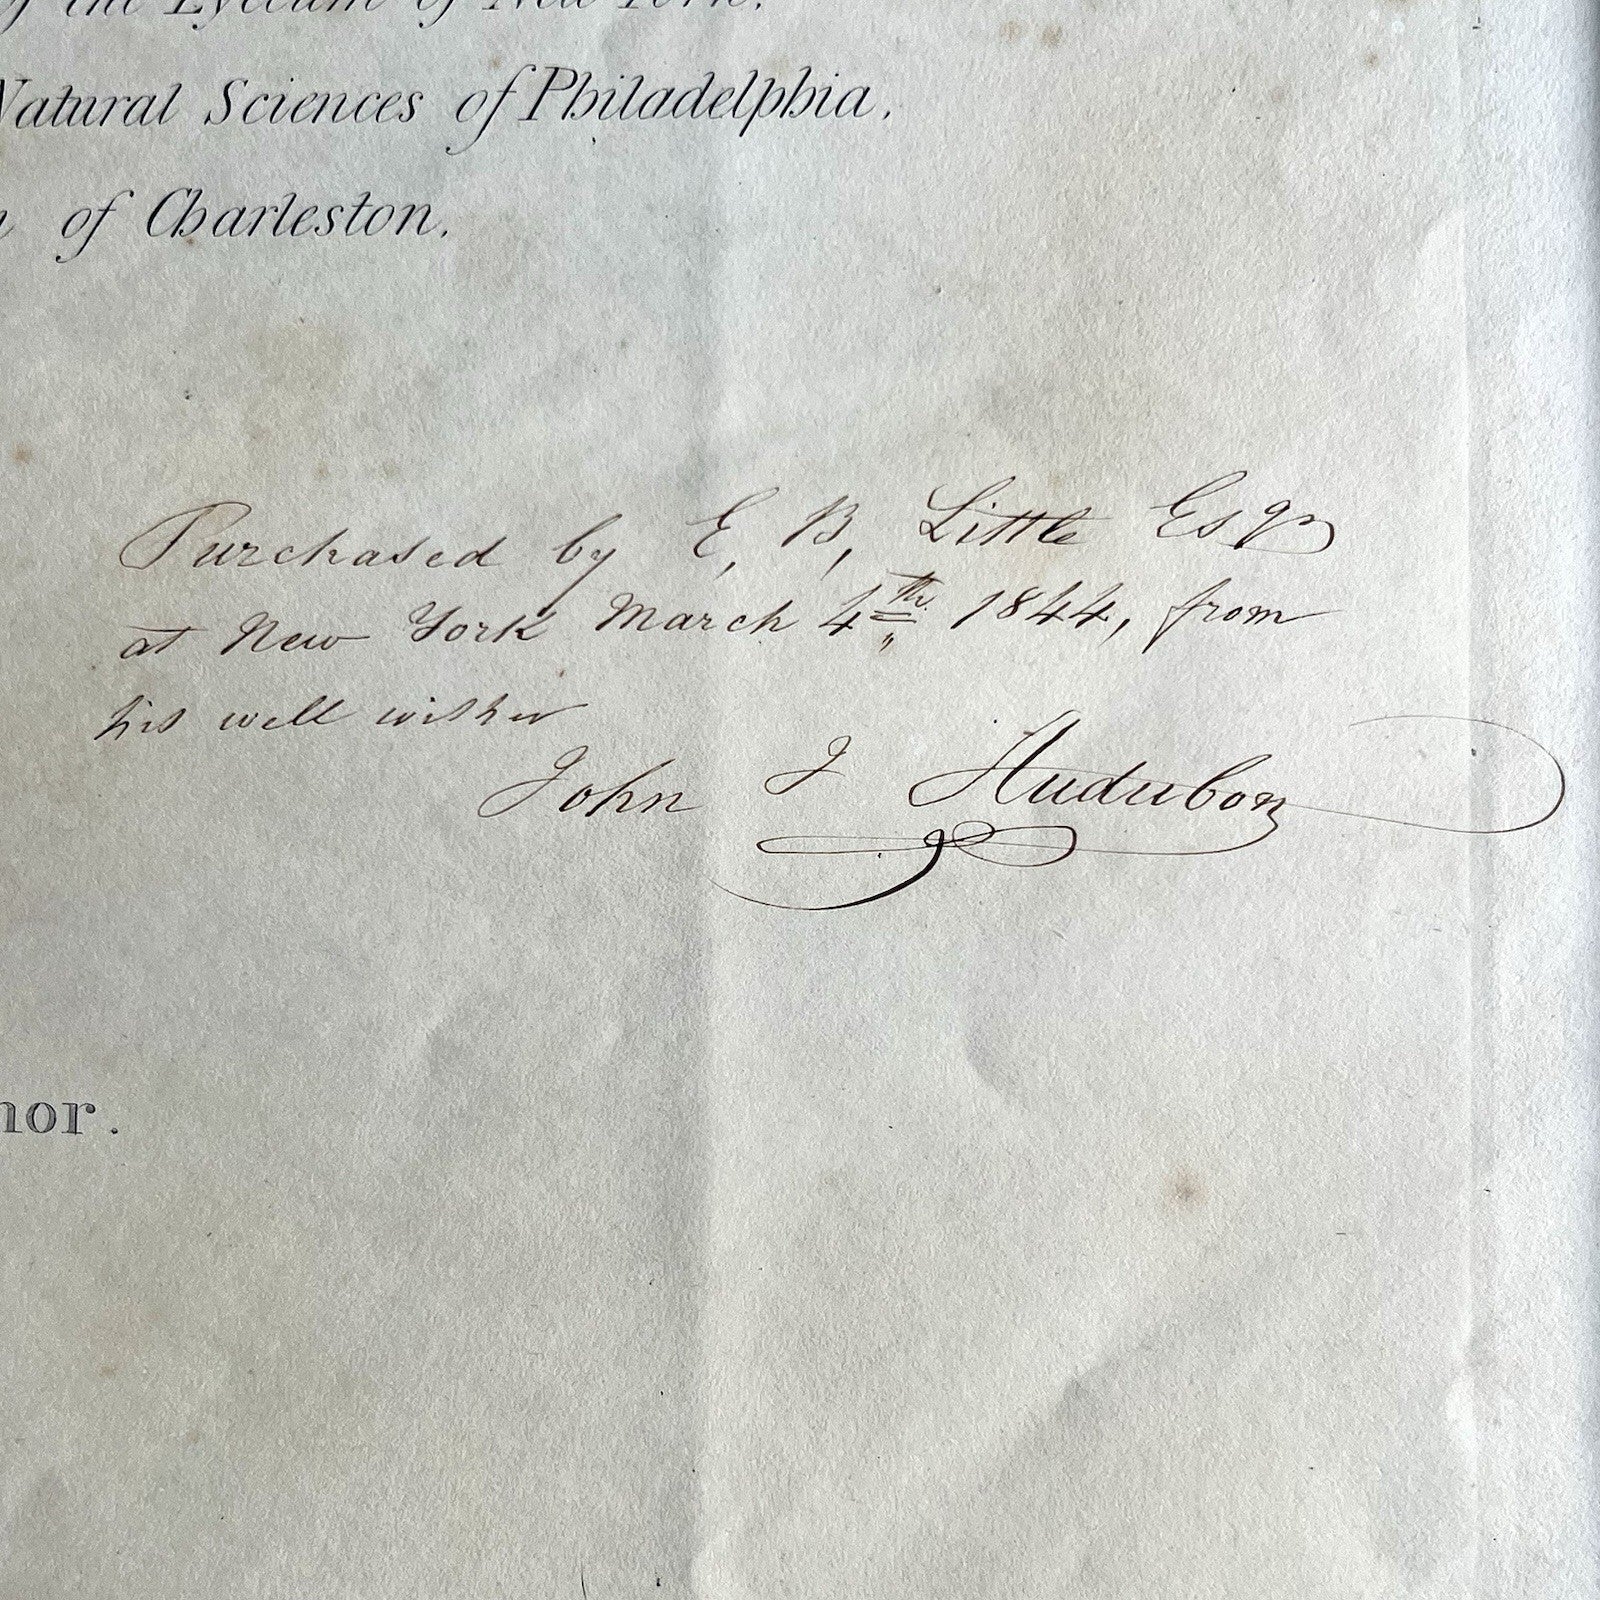 of the Lyceum of New York.
Natural Sciences of Philadelphia.
of Charleston.
Purchased by E, B, Little Esqr
at New York March 4th 1844, from
his well wisher
John J Audubon
hor.